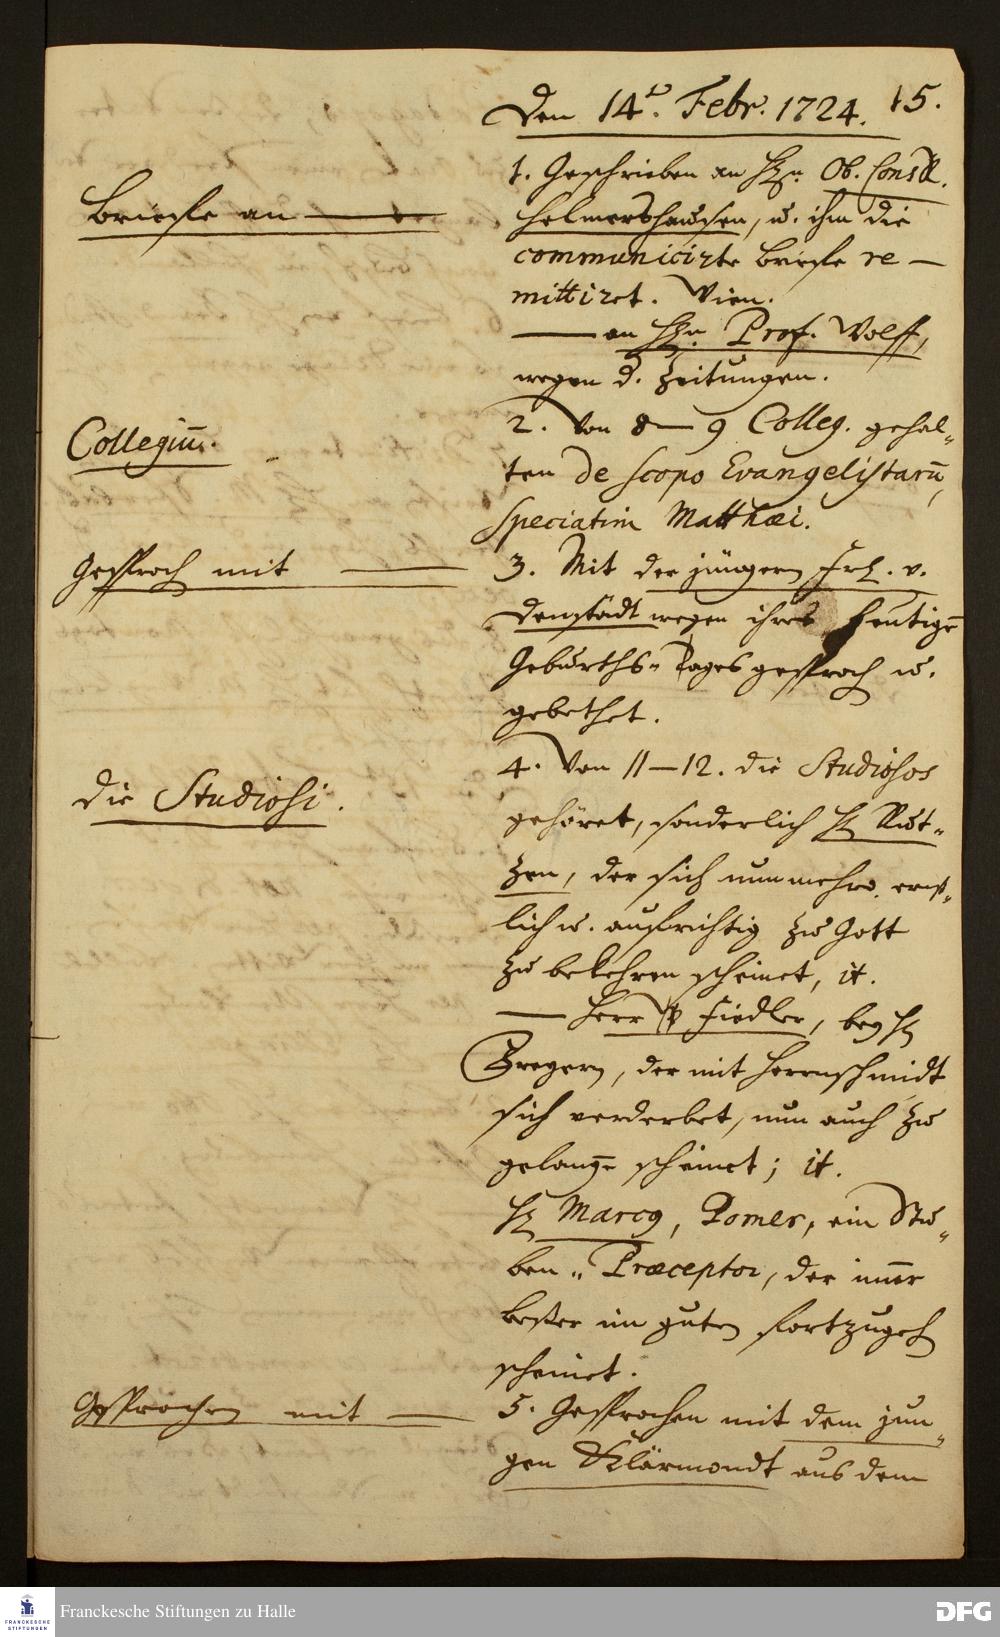 Den 14t. Febr. 1724. 15.
Brieffe an —
1. Geschrieben an Hrn. Ob. ConsR.
Helmershausen, u. ihm die
communicirte Brieffe re-
mittiret.
— an Hrn Prof. Wolff,
wegen d. Zeitungen.
Collegiū.
2. Von 8—9 Colleg. gehal-
ten de scopo Evangelistarū,
speciatim Matthæi.
Gesproch mit —
3. Mit der jüngern Frl. v.
Denstädt wegen ihres heutigē
Geburths-Tages gesproch u.
gebethet.
Die Studiosi.
4. Von 11—12. die Studiosos
gehöret, sonderlich H.
der sich nunmehro ernst-
lich u. auffrichtig zu Gott
zu bekehren scheinet, it.
— Herr Fiedler, bey H.
der mit Herrnschmidt
sich verderbet, nun auch zu
gelangē scheinet; it.
H. Marcy, Pomer, ein Stu-
ben-Præceptor, der im̄er
beßer im guten fortzugeh
scheinet.
Gesprochen mit —
5. Gesprochen mit dem jun-
gen Klärmondt aus dem
Franckesche Stiftungen zu Halle
FRANCKESCHE
STIFTUNGEN
DFG